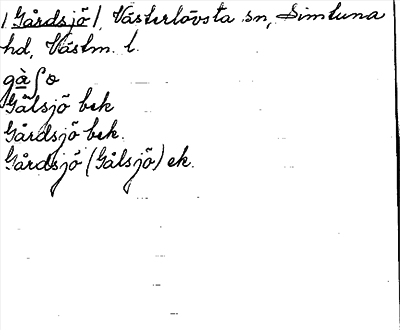 /Gårdsjö/, Västerlövsta sn, Simtuna
hd, Västm. l.
gà∫ø
Gålsjö bek
Gårdsjö bek.
Gårdsjö (Gålsjö) ek.